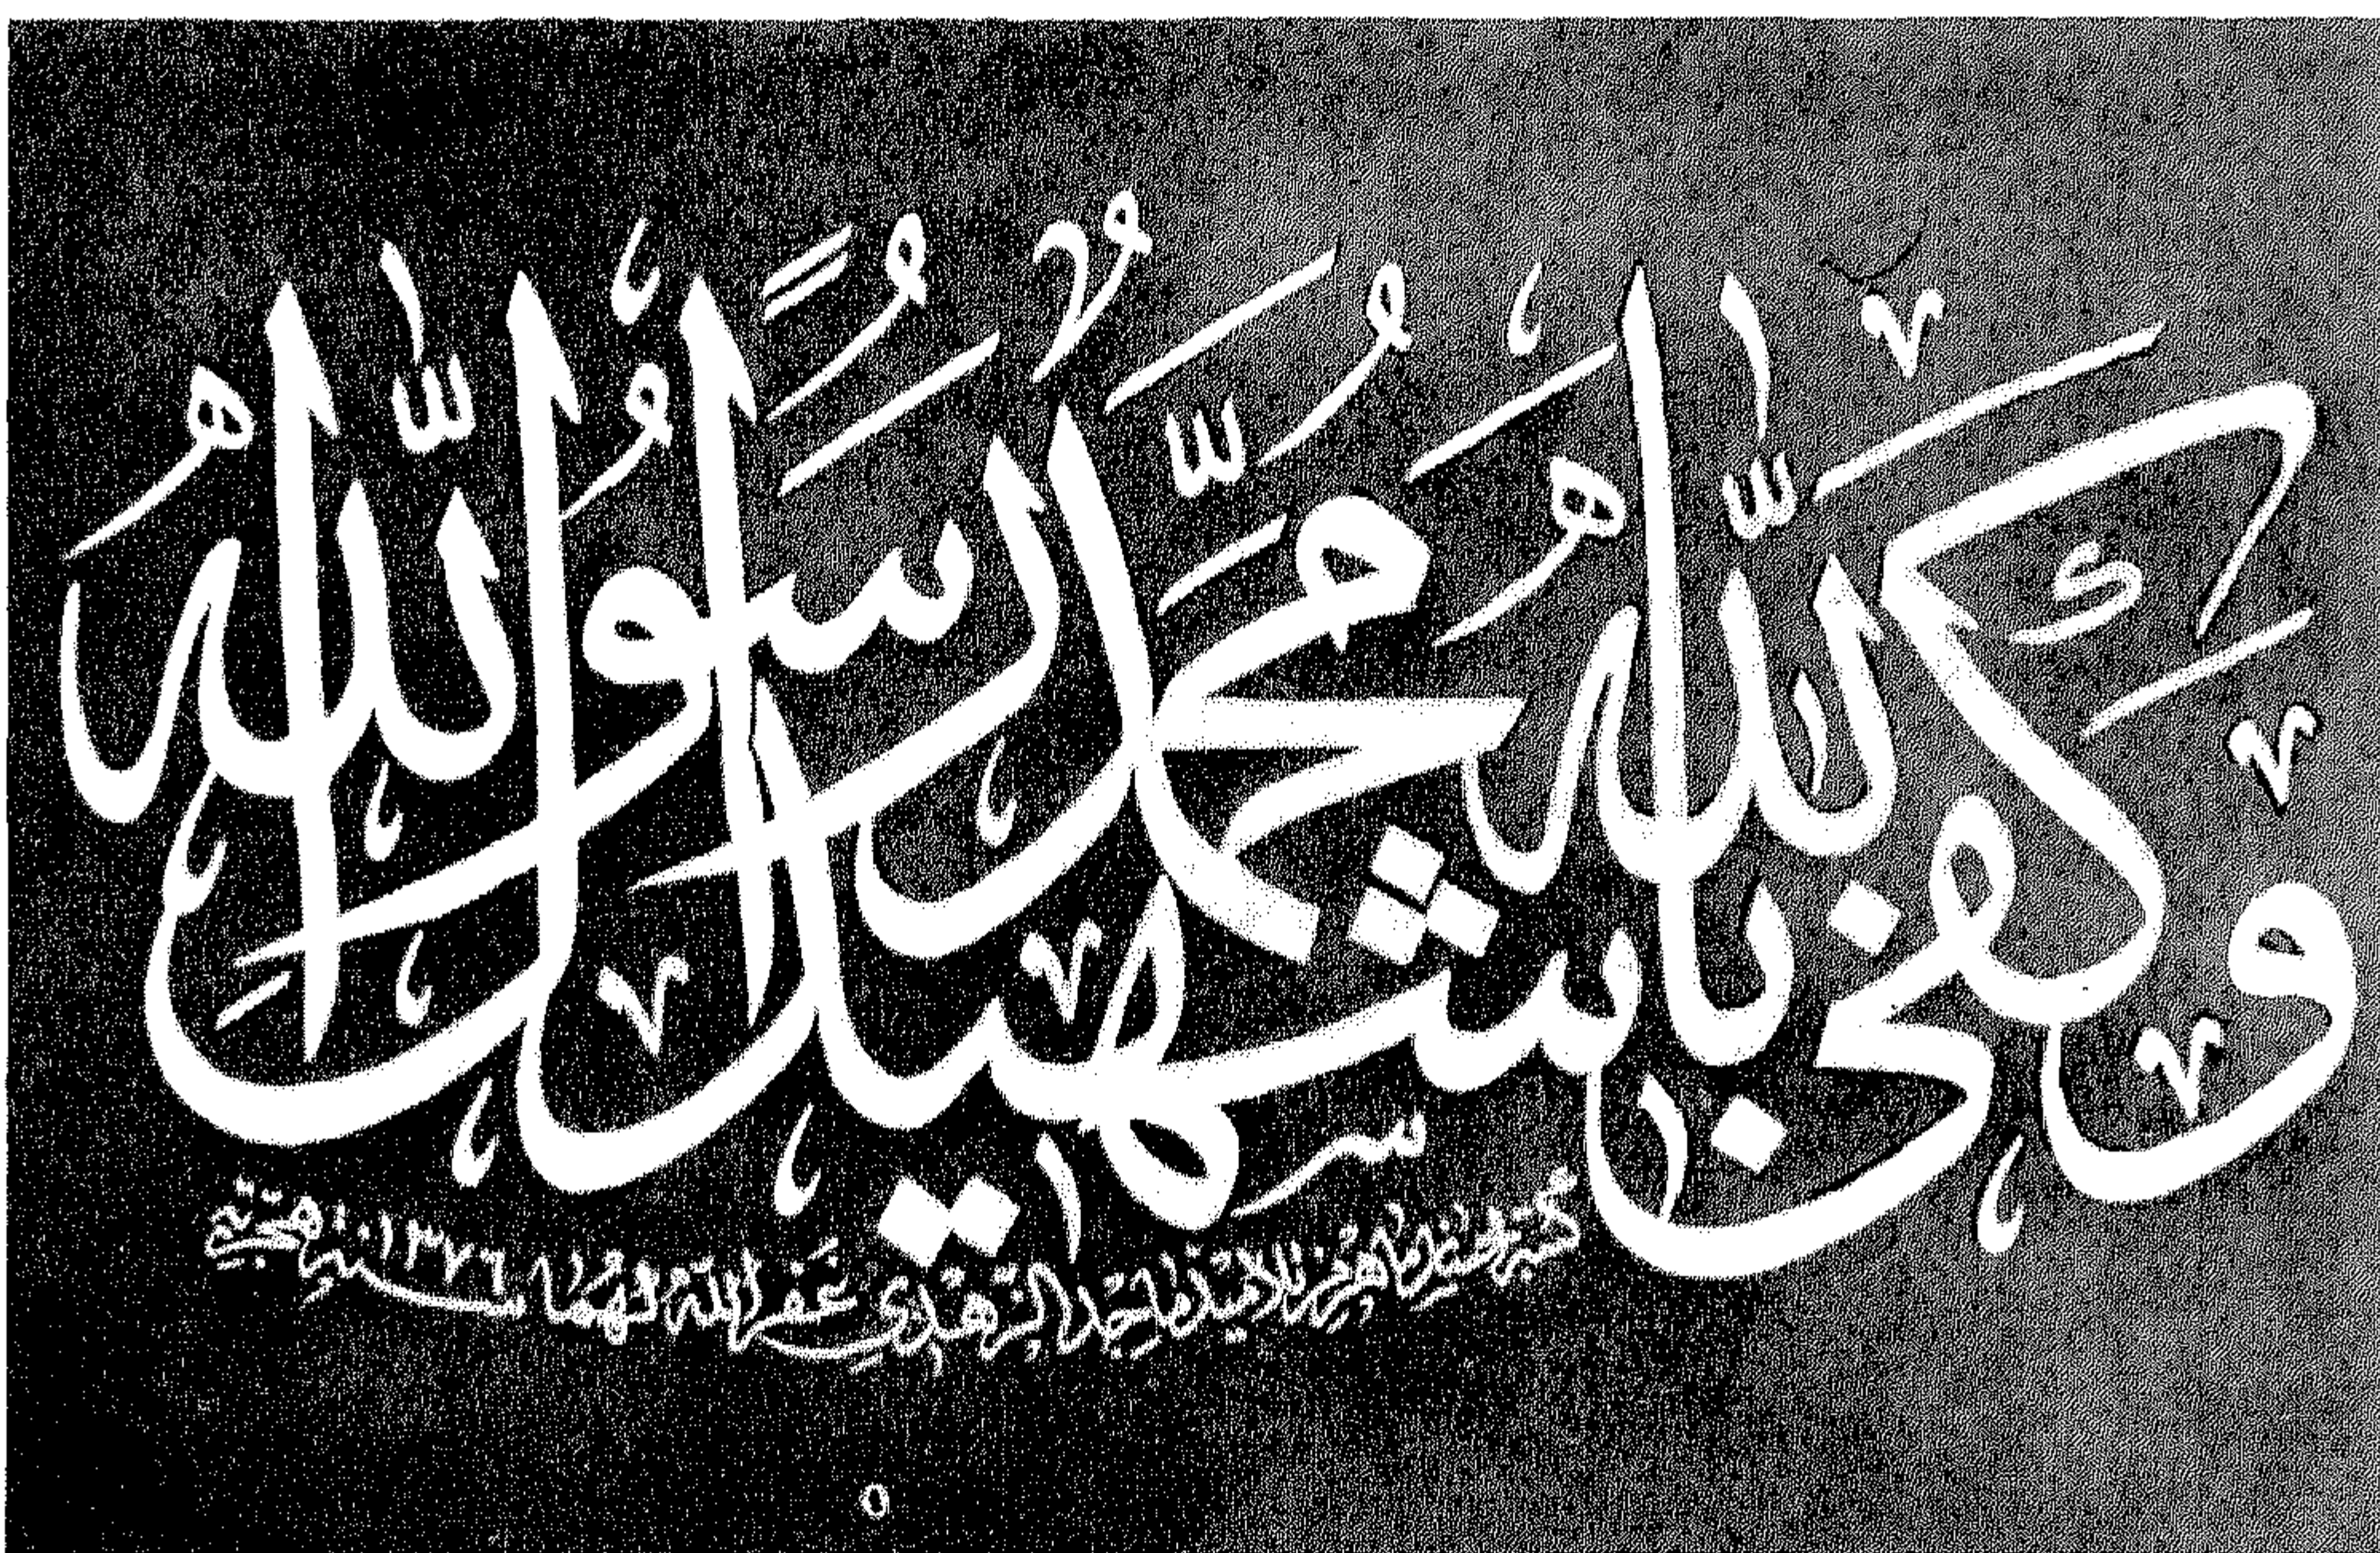 وَكَفَىٰ بِاللّٰهِ شَهِيدًا مُحَمَّدٌ رَسُولُ اللّٰهِ
تلاميذ ماجد الزهدي غفر الله لهما سنة ١٣٧٦ هجرية
٥